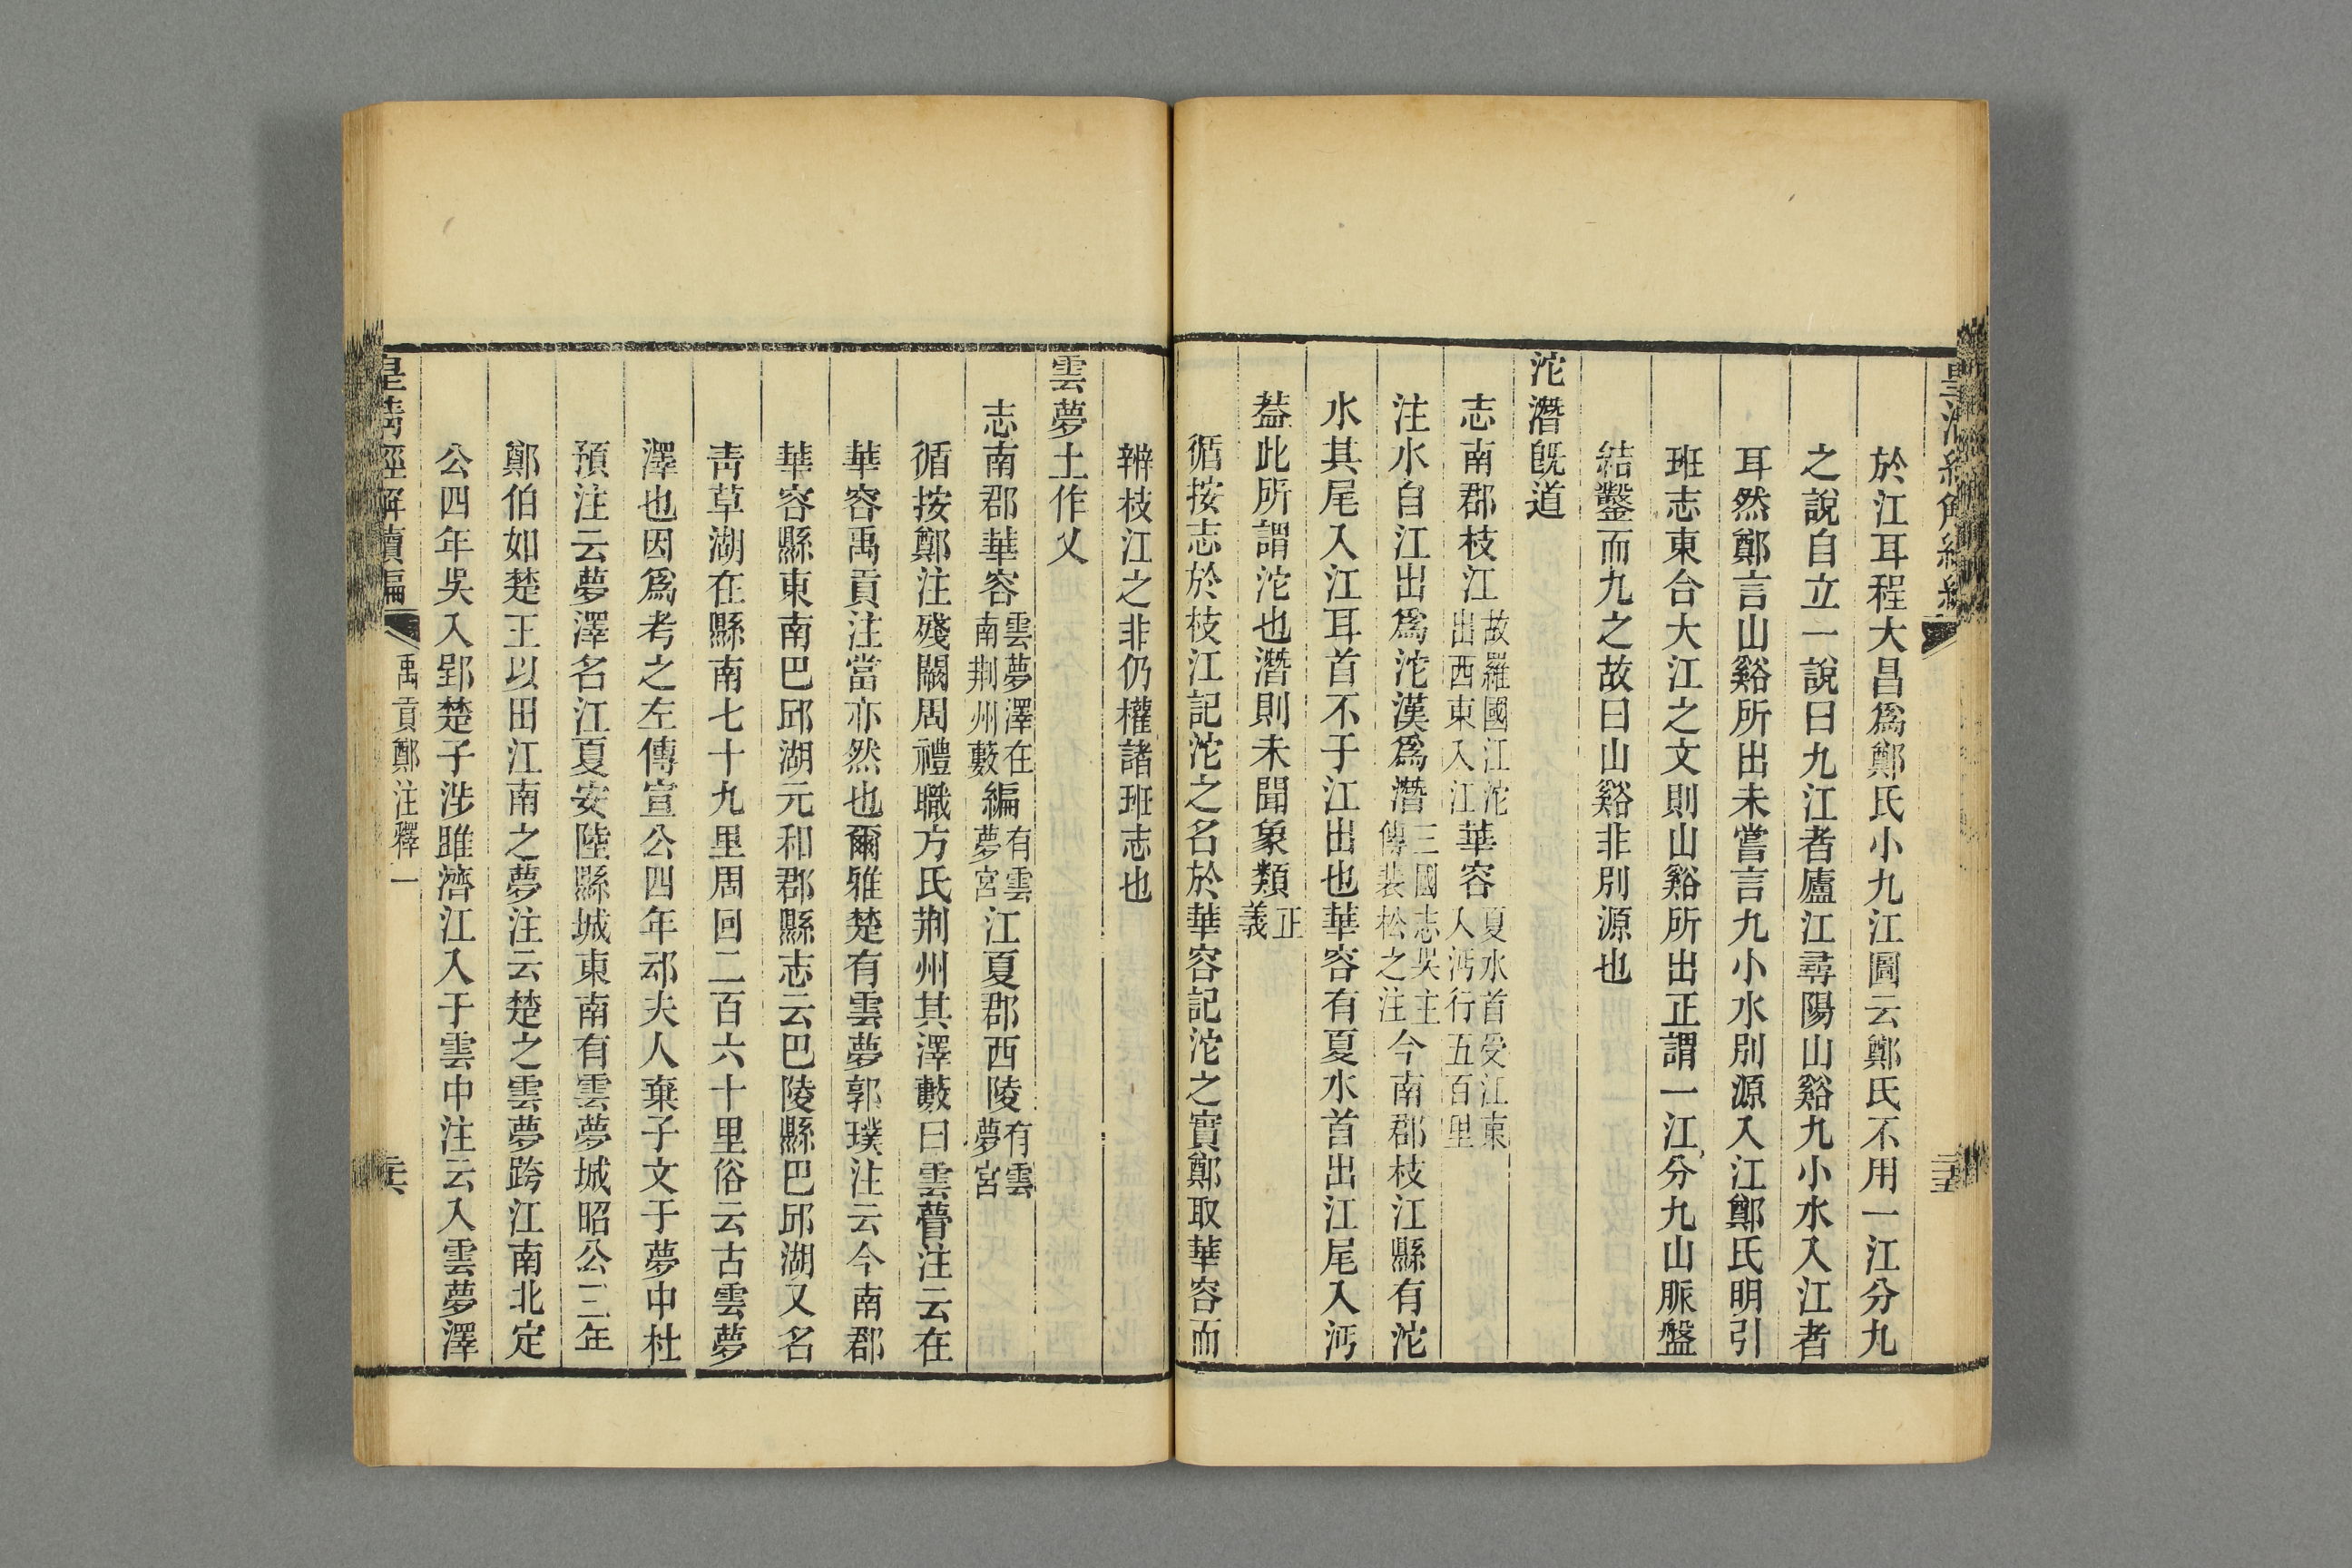 於江耳程大昌爲鄭氏小九江圖云鄭氏不用一江分九
之說自立一說曰九江者廬江尋陽山谿九小水入江者
耳然鄭言山谿所出未嘗言九小水別源入江鄭氏明引
班志東合大江之文則山谿所出正謂一江分九山脈盤
結鑿而九之故曰山谿非別源也
沱潛旣道
志南郡枝江故羅國江沱出西東入江華容夏水首受江東入沔行五百里
注水自江出爲沱漢爲潛三國志吳主傳裴松之注今南郡枝江縣有沱
水其尾入江耳首不于江出也華容有夏水首出江尾入沔
葢此所謂沱也潛則未聞象類正義
循按志於枝江記沱之名於華容記沱之實鄭取華容而
辨枝江之非仍權諸班志也
雲夢土作乂
志南郡華容雲夢澤在南荆州藪編有雲夢宮江夏郡西陵有雲夢宮
循按鄭注殘闕周禮職方氏荆州其澤藪曰雲瞢注云在
華容禹貢注當亦然也爾雅楚有雲夢郭璞注云今南郡
華容縣東南巴邱湖元和郡縣志云巴陵縣巴邱湖又名
靑草湖在縣南七十九里周回二百六十里俗云古雲夢
澤也因爲考之左傳宣公四年䢵夫人棄子文于夢中杜
預注云夢澤名江夏安陸縣城東南有雲夢城昭公三年
鄭伯如楚王以田江南之夢注云楚之雲夢跨江南北定
公四年吳入郢楚子涉雎濟江入于雲中注云入雲夢澤
皇清經解續編 禹貢鄭注釋一